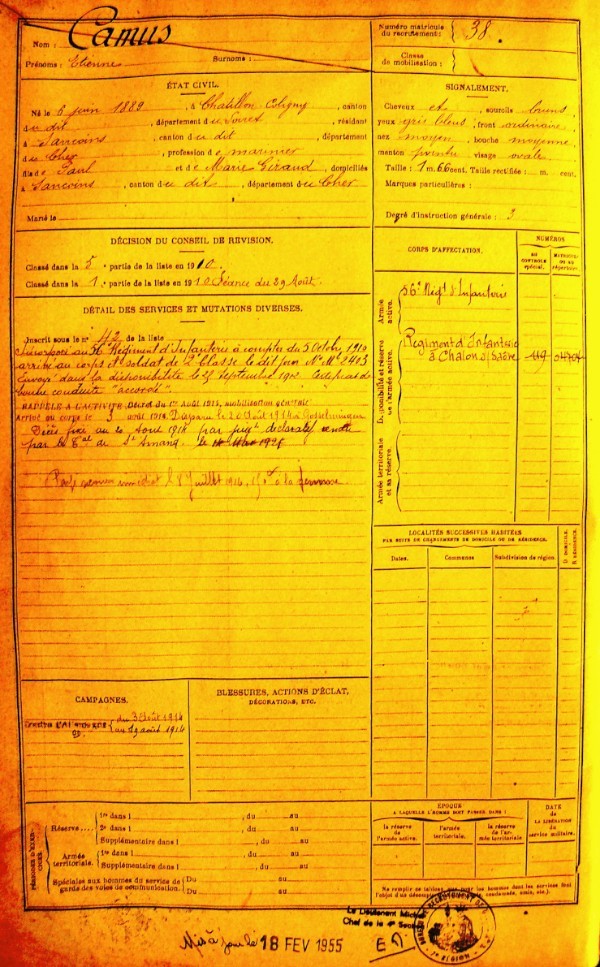 Nom : Camus
Prénoms : Etienne Surnoms :
Numéro matricule du recrutement : 38.
Classe de mobilisation :
ÉTAT CIVIL.
Né le 6 juin 1889, à Chatillon Coligny, canton
du dit, département du Loiret, résidant
à Sancoins, canton du dit, département
du Cher, profession de marinier
fils de Paul et de Marie Giraud, domiciliés
à Sancoins, canton du dit, département du Cher
Marié le
SIGNALEMENT.
Cheveux et sourcils bruns
yeux gris bleus, front ordinaire
nez moyen, bouche moyenne
menton pointu visage ovale
Taille : 1 m. 66 cent. Taille rectifiée : m. cent.
Marques particulières :
Degré d'instruction générale : 3
DÉCISION DU CONSEIL DE REVISION.
Classé dans la 5e partie de la liste en 1910.
Classé dans la 1e partie de la liste en 1910 Séance du 29 Août.
DÉTAIL DES SERVICES ET MUTATIONS DIVERSES.
Inscrit sous le n° 42 de la liste
Incorporé au 56e Régiment d'Infanterie à compter du 5 Octobre 1910
arrivé au corps et Soldat de 2e Classe le dit jour N° Mle 2403
Envoyé dans la disponibilité le 25 Septembre
bonne conduite "accordé"
RAPPELÉ A L'ACTIVITÉ Décret du 1er août 1914, mobilisation générale
Arrivé au corps le 3 août 1914. Disparu le 20 Août 1914 à Gosselmingen
Décès fixé au 20 Août 1914 par jugt déclaratif rendu
par le Tal de St Amand, le
immédiat le 8 Juillet 1916,
CORPS D'AFFECTATION.
NUMÉROS
au contrôle spécial.
MATRICULE ou au répertoire
Armée active.
56e Régt d'Infanterie
Disponibilité et réserve de l'armée active.
Régiment d'Infanterie
à Chalon s/Saône 119
Armée territoriale et sa réserve.
LOCALITÉS SUCCESSIVES HABITÉES
PAR SUITE DE CHANGEMENTS DE DOMICILE OU DE RÉSIDENCE.
Dates. Communes. Subdivision de région. D. DOMICILE. R. RÉSIDENCE.
CAMPAGNES.
du 3 Août 1914
au 19 août 1914
BLESSURES, ACTIONS D'ÉCLAT,
DÉCORATIONS, ETC.
PÉRIODES D'EXERCICES.
Réserve.... 1re dans l , du au
2e dans l , du au
Supplémentaire dans l , du au
Armée territoriale. 1re dans l , du au
Supplémentaire dans l , du au
Spéciales aux hommes du service de Du au
garde des voies de communication. Du au
ÉPOQUE
A LAQUELLE L'HOMME DOIT PASSER DANS :
la réserve de l'armée active. l'armée territoriale. la réserve de l'armée territoriale
DATE de LA LIBÉRATION du service militaire.
Le Lieutenant
Chef de la 4e Section
Mis à jour le 18 FEV 1955